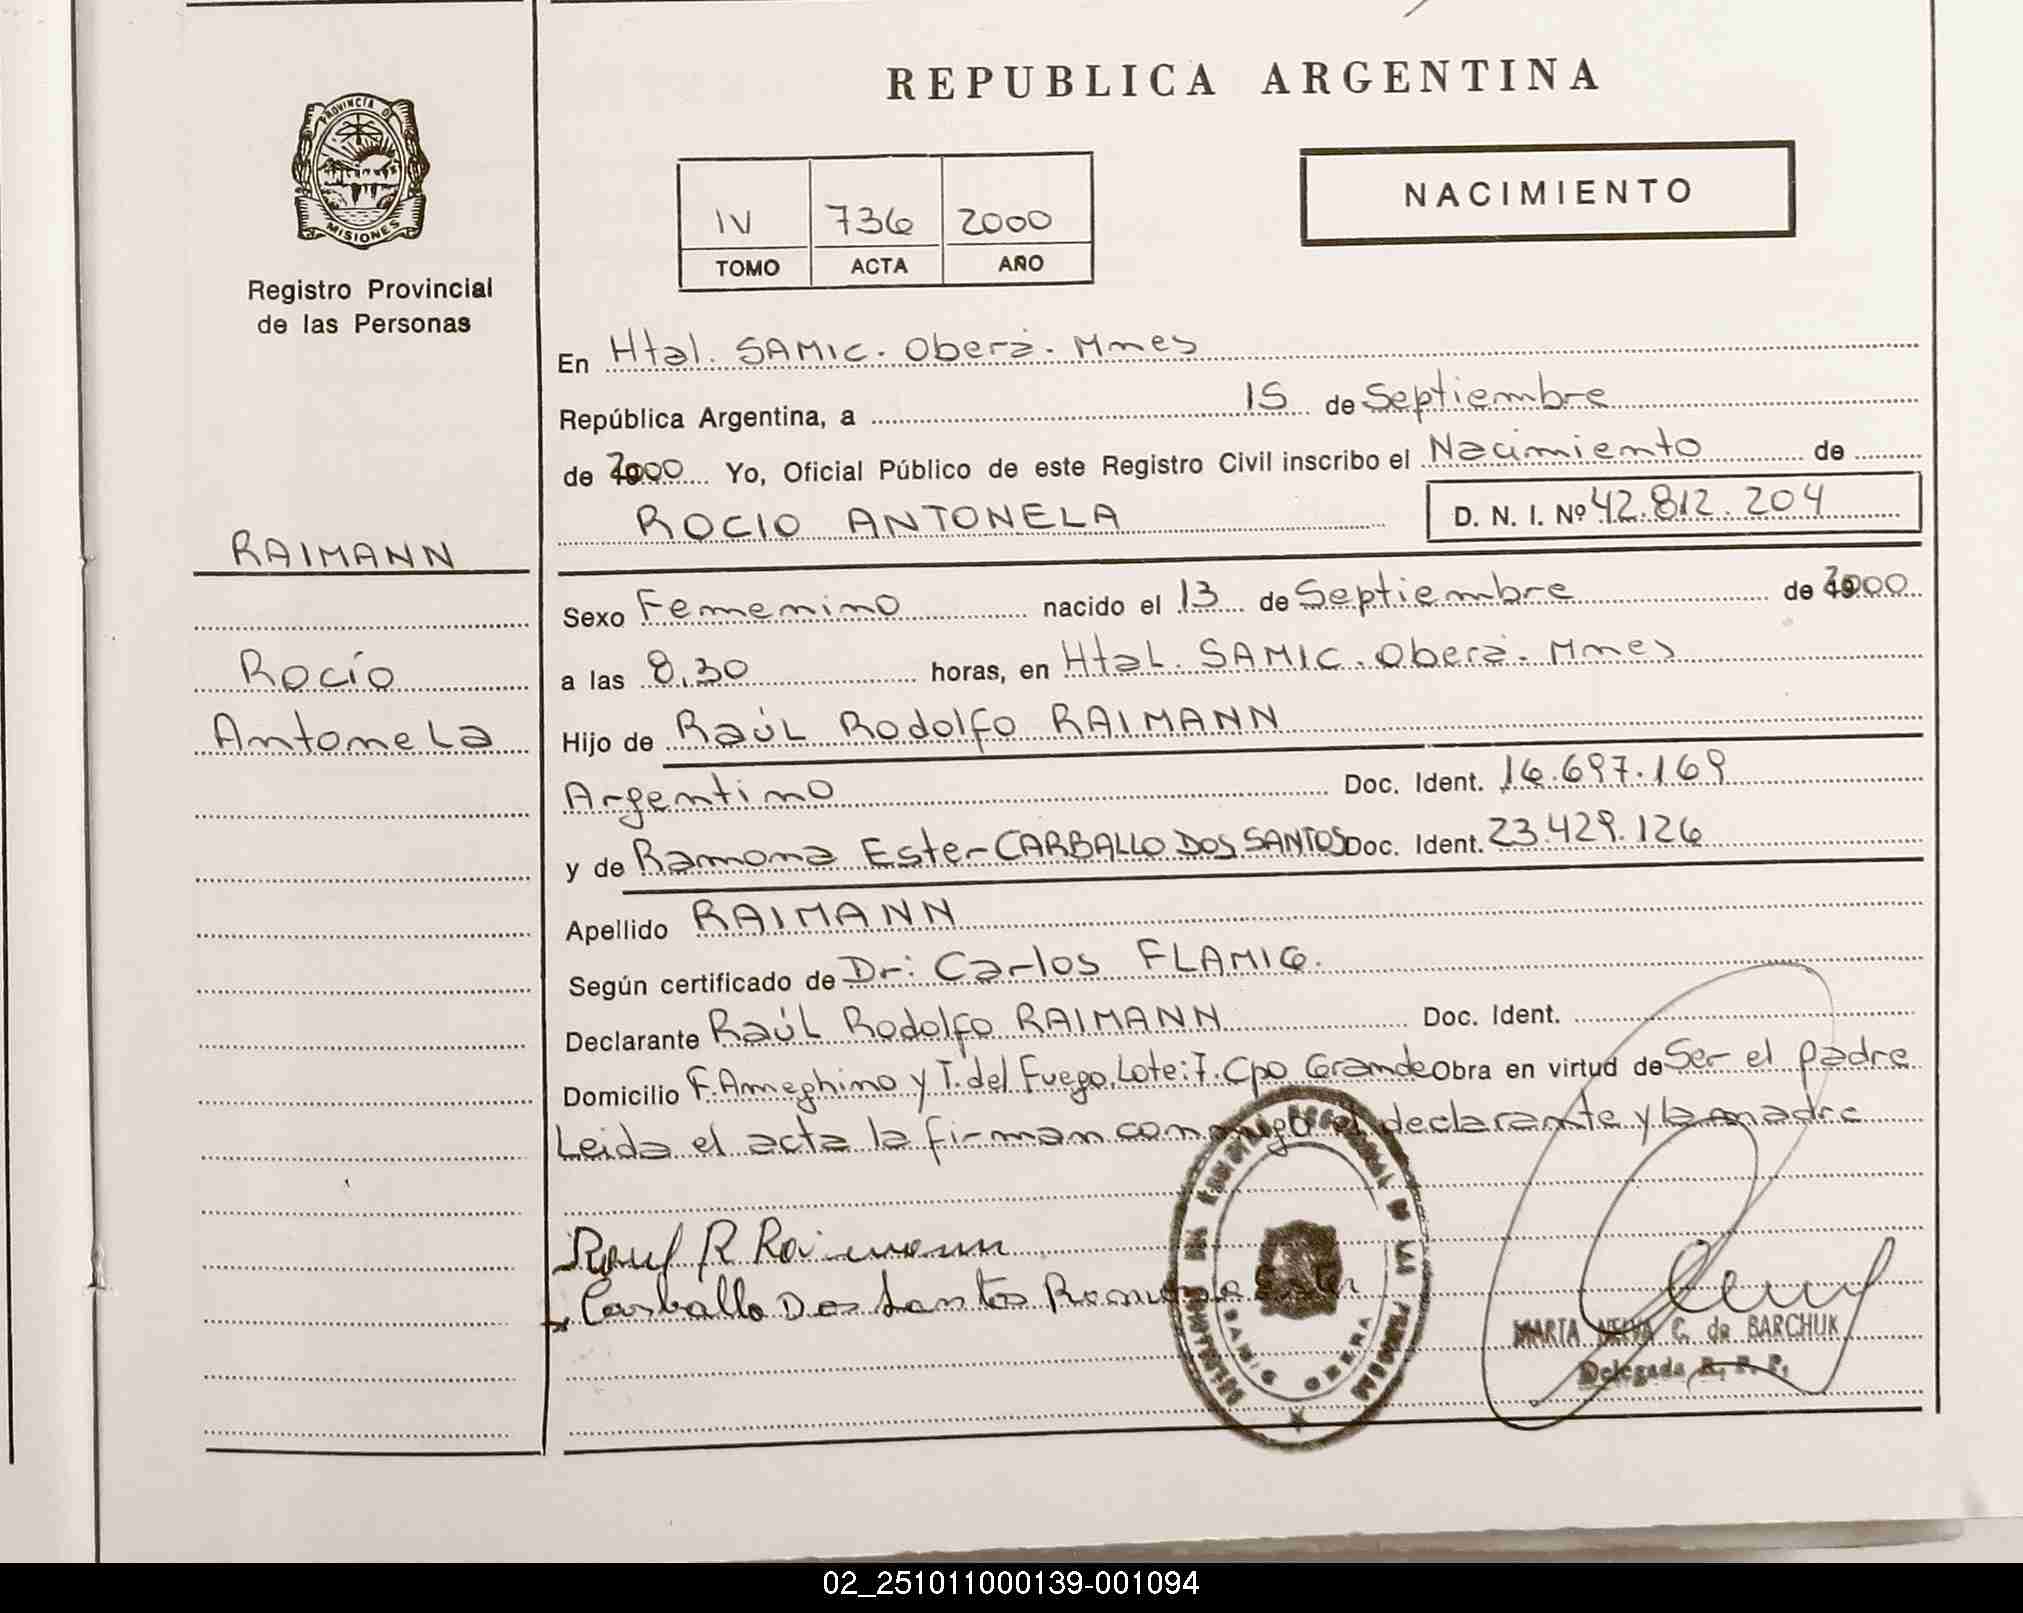 REPUBLICA ARGENTINA
PROVINCIA DE
MISIONES
Registro Provincial
de las Personas
IV 736 2000
TOMO ACTA AÑO
NACIMIENTO
En Htal. SAMIC. Oberá. Mnes
República Argentina, a 15 de Septiembre
de 2000 Yo, Oficial Público de este Registro Civil inscribo el Nacimiento de
ROCIO ANTONELA D. N. I. Nº 42.812.204
RAIMANN
Rocío
Antonela
Sexo Femenino nacido el 13 de Septiembre de 2000
a las 8,30 horas, en Htal. SAMIC. Oberá. Mnes
Hijo de Raúl Rodolfo RAIMANN
Argentino Doc. Ident. 16.697.169
y de Ramona Ester CARBALLO DOS SANTOS Doc. Ident. 23.429.126
Apellido RAIMANN
Según certificado de Dr: Carlos FLAMIG.
Declarante Raúl Rodolfo RAIMANN Doc. Ident.
Domicilio F. Ameghino y T. del Fuego. Lote: 7. Cpo Grande Obra en virtud de Ser el padre
Leida el acta la firman conmigo el declarante y la madre
Raul R Raimann
Carballo Dos Santos Ramona Ester
SAMIC OBERA
MARTA NELVA C. de BARCHUK
Delegada R. P. P.
02_251011000139-001094